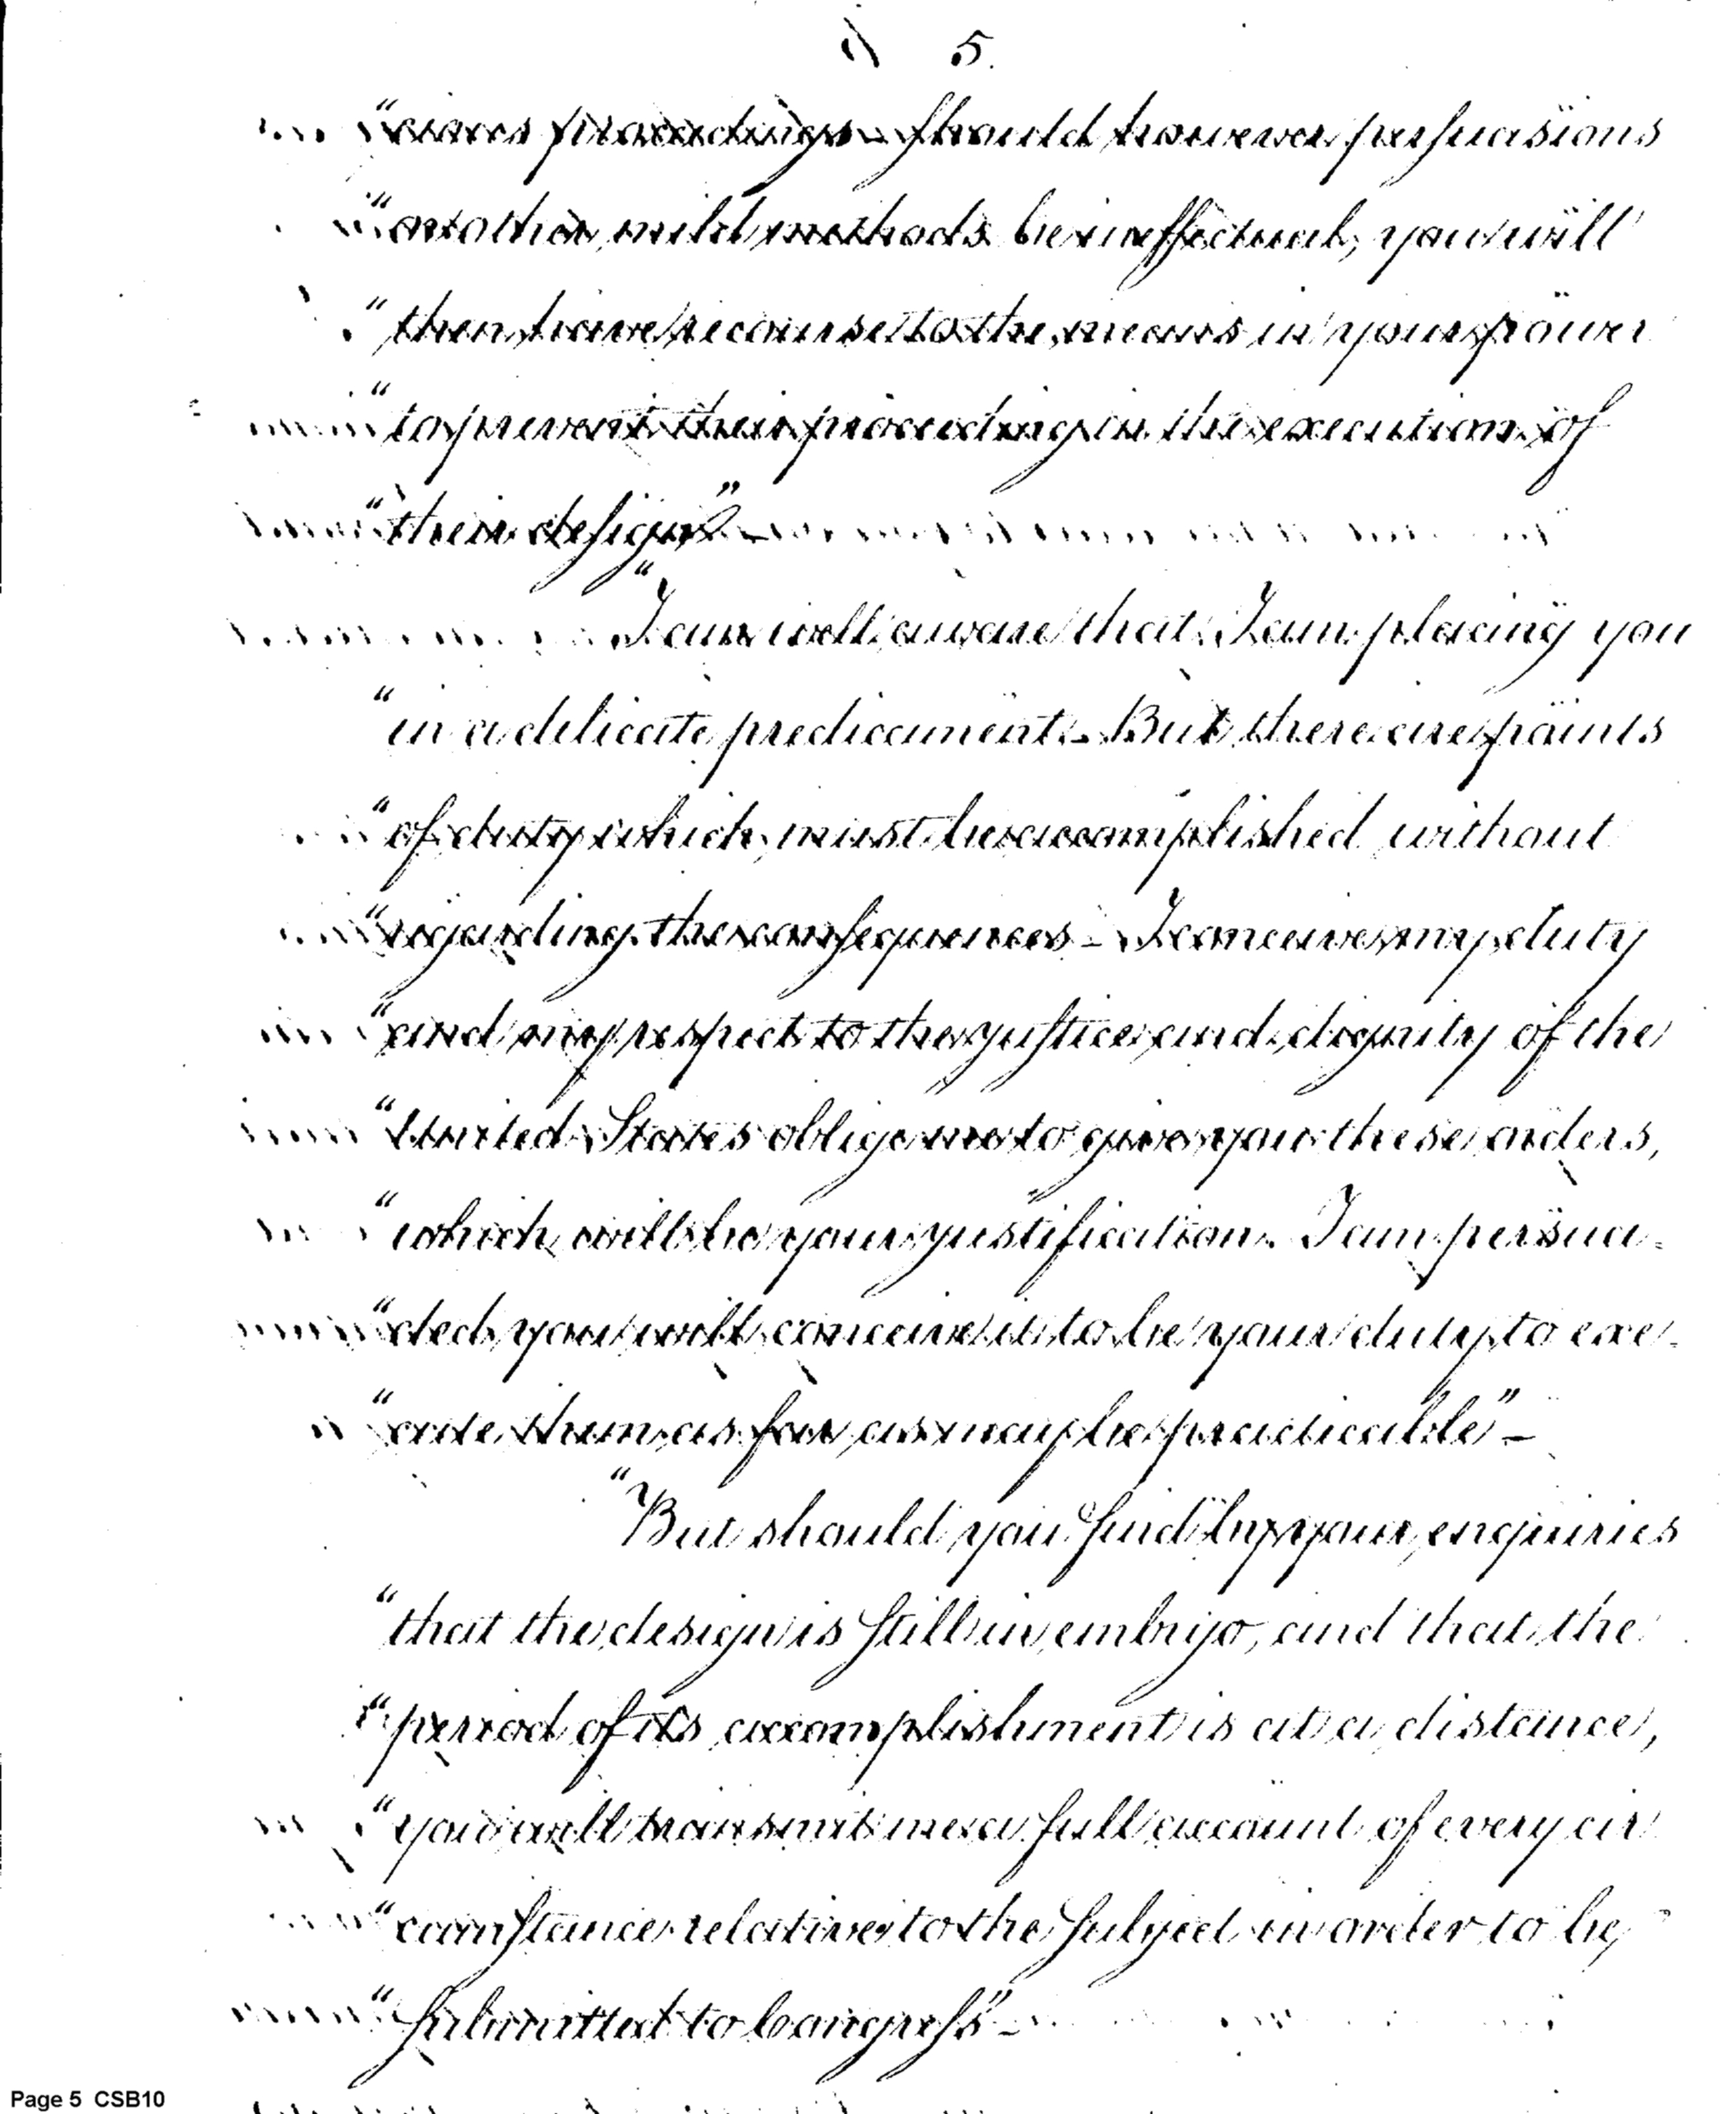 5.
"cious proceedings — Should however persuasions
"or other mild methods be ineffectual, you will
"then have recourse to the means in your power
"to prevent their proceeding in the execution of
"their design" —
"I am well aware that I am placing you
"in a delicate predicament — But there are points
"of duty which must be accomplished without
"regarding the consequences — I conceive my duty
"and my respect to the justice and dignity of the
"United States oblige me to give you these orders,
"which will be your justification. I am persua-
"ded you will conceive it to be your duty to exe-
"cute them as far as may be practicable" —
"But should you find by your enquiries
"that the design is still in embrijo, and that the
"period of its accomplishment is at a distance,
"you will transmit me a full account of every cir
"cumstance relative to the subject in order to be
"submitted to Congress" —
Page 5 CSB10